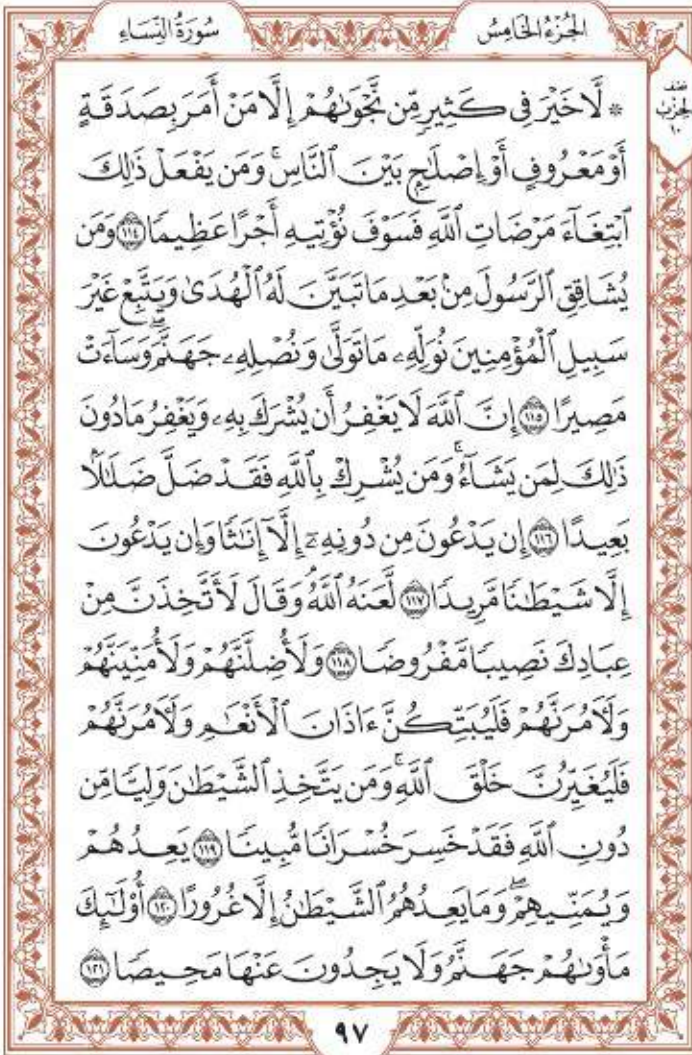 سُورَةُ النِّسَاءِ
الجُزْءُ الخَامِسُ
نصف
الحزب
١٠
۞ لَّا خَيْرَ فِي كَثِيرٍ مِّن نَّجْوَىٰهُمْ إِلَّا مَنْ أَمَرَ بِصَدَقَةٍ
أَوْ مَعْرُوفٍ أَوْ إِصْلَٰحٍۭ بَيْنَ ٱلنَّاسِۚ وَمَن يَفْعَلْ ذَٰلِكَ
ٱبْتِغَآءَ مَرْضَاتِ ٱللَّهِ فَسَوْفَ نُؤْتِيهِ أَجْرًا عَظِيمًا ١١٤ وَمَن
يُشَاقِقِ ٱلرَّسُولَ مِنۢ بَعْدِ مَا تَبَيَّنَ لَهُ ٱلْهُدَىٰ وَيَتَّبِعْ غَيْرَ
سَبِيلِ ٱلْمُؤْمِنِينَ نُوَلِّهِۦ مَا تَوَلَّىٰ وَنُصْلِهِۦ جَهَنَّمَۖ وَسَآءَتْ
مَصِيرًا ١١٥ إِنَّ ٱللَّهَ لَا يَغْفِرُ أَن يُشْرَكَ بِهِۦ وَيَغْفِرُ مَا دُونَ
ذَٰلِكَ لِمَن يَشَآءُۚ وَمَن يُشْرِكْ بِٱللَّهِ فَقَدْ ضَلَّ ضَلَٰلًۢا
بَعِيدًا ١١٦ إِن يَدْعُونَ مِن دُونِهِۦٓ إِلَّآ إِنَٰثًا وَإِن يَدْعُونَ
إِلَّا شَيْطَٰنًا مَّرِيدًا ١١٧ لَّعَنَهُ ٱللَّهُۘ وَقَالَ لَأَتَّخِذَنَّ مِنْ
عِبَادِكَ نَصِيبًا مَّفْرُوضًا ١١٨ وَلَأُضِلَّنَّهُمْ وَلَأُمَنِّيَنَّهُمْ
وَلَءَامُرَنَّهُمْ فَلَيُبَتِّكُنَّ ءَاذَانَ ٱلْأَنْعَٰمِ وَلَءَامُرَنَّهُمْ
فَلَيُغَيِّرُنَّ خَلْقَ ٱللَّهِۚ وَمَن يَتَّخِذِ ٱلشَّيْطَٰنَ وَلِيًّا مِّن
دُونِ ٱللَّهِ فَقَدْ خَسِرَ خُسْرَانًا مُّبِينًا ١١٩ يَعِدُهُمْ
وَيُمَنِّيهِمْۖ وَمَا يَعِدُهُمُ ٱلشَّيْطَٰنُ إِلَّا غُرُورًا ١٢٠ أُو۟لَٰٓئِكَ
مَأْوَىٰهُمْ جَهَنَّمُ وَلَا يَجِدُونَ عَنْهَا مَحِيصًا ١٢١
٩٧